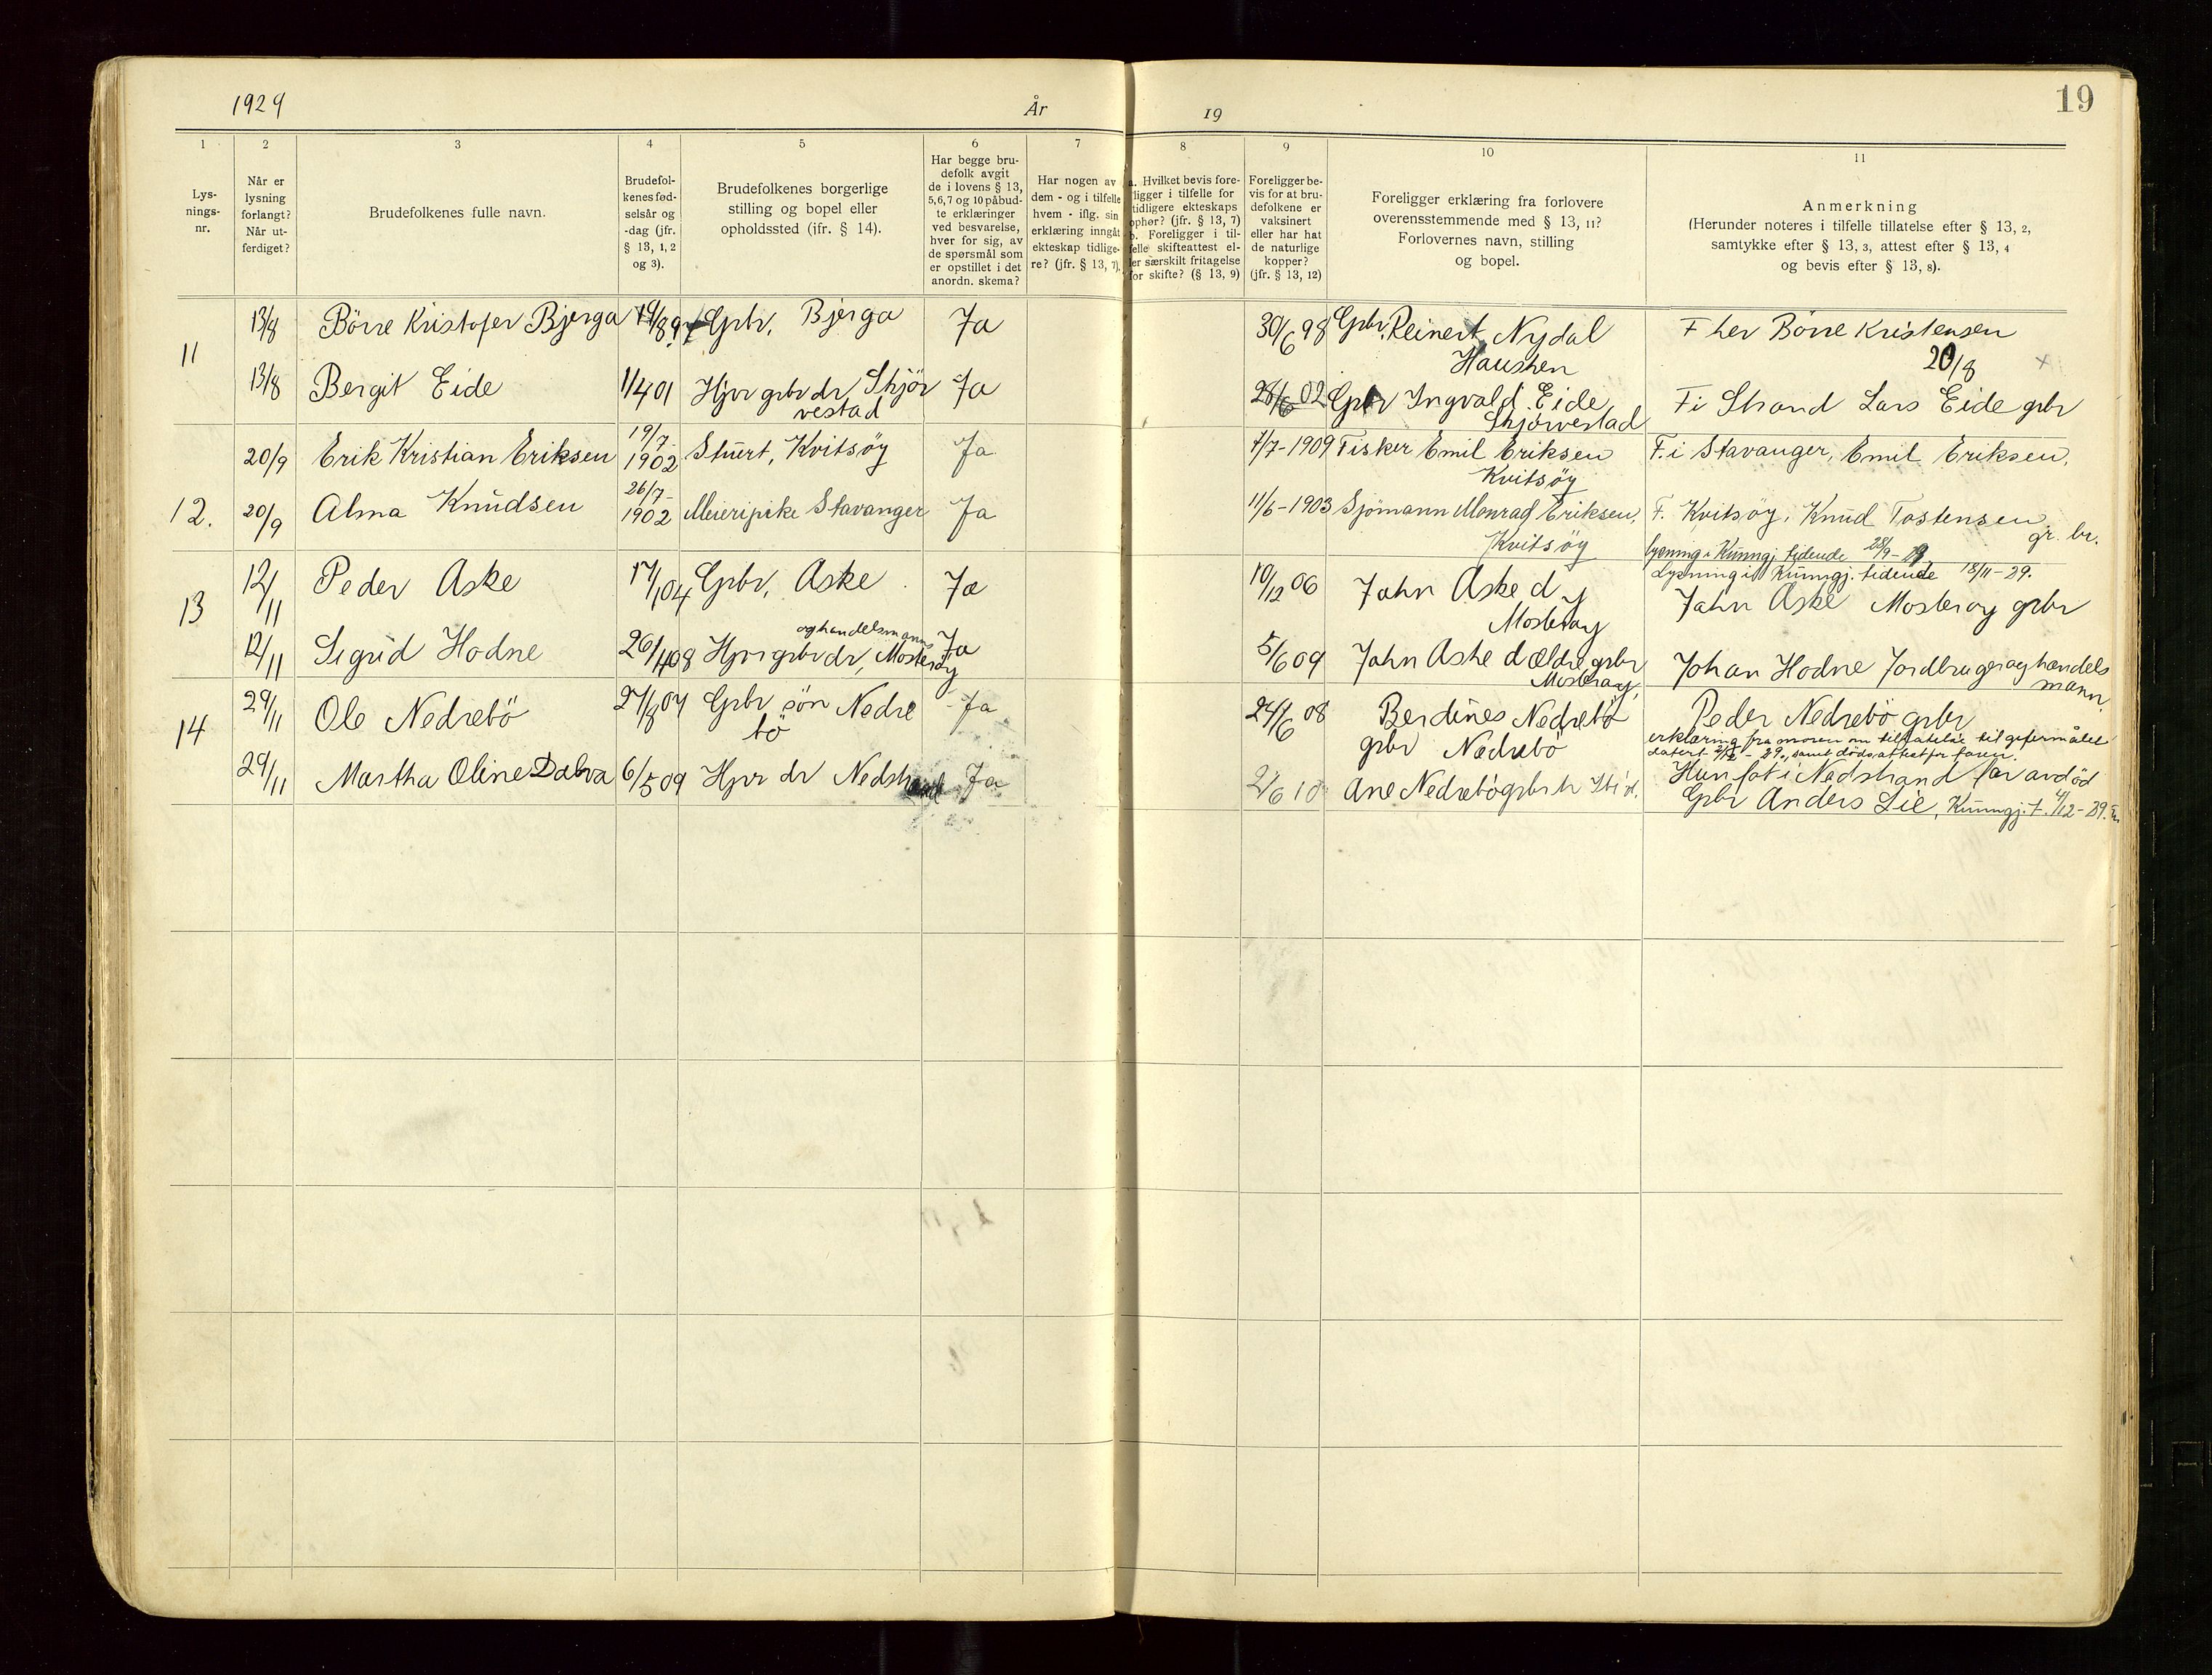 1929
År
19
19
1
2
3
4
5
6
7
8
9
10
11
Lys-
nings-
nr.
Når er
lysning
forlangt?
Når ut-
ferdiget?
Brudefolkenes fulle navn.
Brudefol-
kenes fød-
selsår og
-dag (jfr.
§ 13, 1, 2
og 3).
Brudefolkenes borgerlige
stilling og bopel eller
opholdssted (jfr. § 14).
Har begge bru-
defolk avgit
de i lovens § 13,
5, 6, 7 og 10 påbud-
te erklæringer
ved besvarelse,
hver for sig, av
de spørsmål som
er opstillet i det
anordn. skema?
Har nogen av
dem - og i tilfelle
hvem - iflg. sin
erklæring inngåt
ekteskap tidlige-
re? (jfr. § 13, 7).
a. Hvilket bevis fore-
ligger i tilfelle for
tidligere ekteskaps
ophør? (jfr. § 13, 7)
b. Foreligger i til-
felle skifteattest el-
ler særskilt fritagelse
for skifte? (§ 13, 9)
Foreligger be-
vis for at bru-
defolkene er
vaksinert
eller har hat
de naturlige
kopper?
(jfr. § 13, 12)
Foreligger erklæring fra forlovere
overensstemmende med § 13, 11?
Forlovernes navn, stilling
og bopel.
Anmerkning
(Herunder noteres i tilfelle tillatelse efter § 13, 2,
samtykke efter § 13, 3, attest efter § 13, 4
og bevis efter § 13, 8).
11
13/8 Börre Kristofer Bjerga Grbr, Bjerga Ja 30/6 98 Grbr. Reinert Nydal
Hausken
F her Börre Kristensen
20/8 x
13/8 Bergit Eide 1/4 01 Hjvr grbr dr Skjör
vestad Ja 28/6 02 Grbr Ingvald Eide
Skjörvestad
F i Strand Lars Eide grbr
12.
20/9 Erik Kristian Eriksen 19/7-
1902 Stuert, Kvitsöy Ja 7/7-1909 Fisker Emil Eriksen
Kvitsöy
F. i Stavanger, Emil Eriksen.
20/9 Alma Knudsen 26/7-
1902 Meieripike Stavanger Ja 11/6-1903 Sjömann Monrad Eriksen,
Kvitsöy
F. Kvitsöy, Knud Tostensen
gr. br.
lysning i Kunngj. tidende 28/9-
13
12/11 Peder Aske 17/1 04 Grbr, Aske Ja 10/12 06 John Aske d y
Mosteröy
Lysning i Kunngj. tidende 18/11-29.
John Aske Mosteröy grbr
12/11 Sigrid Hodne 26/4 08 Hjvr grbr dr, Mosteröy
og handelsmann
Ja 5/6 09 John Aske d Ældre grbr
Mosteröy,
Johan Hodne Jordbruger og handels
mann
14
29/11 Ole Nedrebö 27/8 07 Grbr sön Nedre
bö Ja 24/6 08 Berdines Nedrebö
grbr Nedrebö
Peder Nedrebö grbr
erklæring fra moren om tillatelse til giftermålet
datert 2/12-29, samt dödsattest for faren.
29/11 Martha Oline Dalva 6/5 09 Hjvr dr Nedstrand Ja 2/6 10 Ane Nedrebö grbr
Hun föt i Nedstrand far avdöd
Grbr Anders Lie, Kunngj. t. 4/12-29.